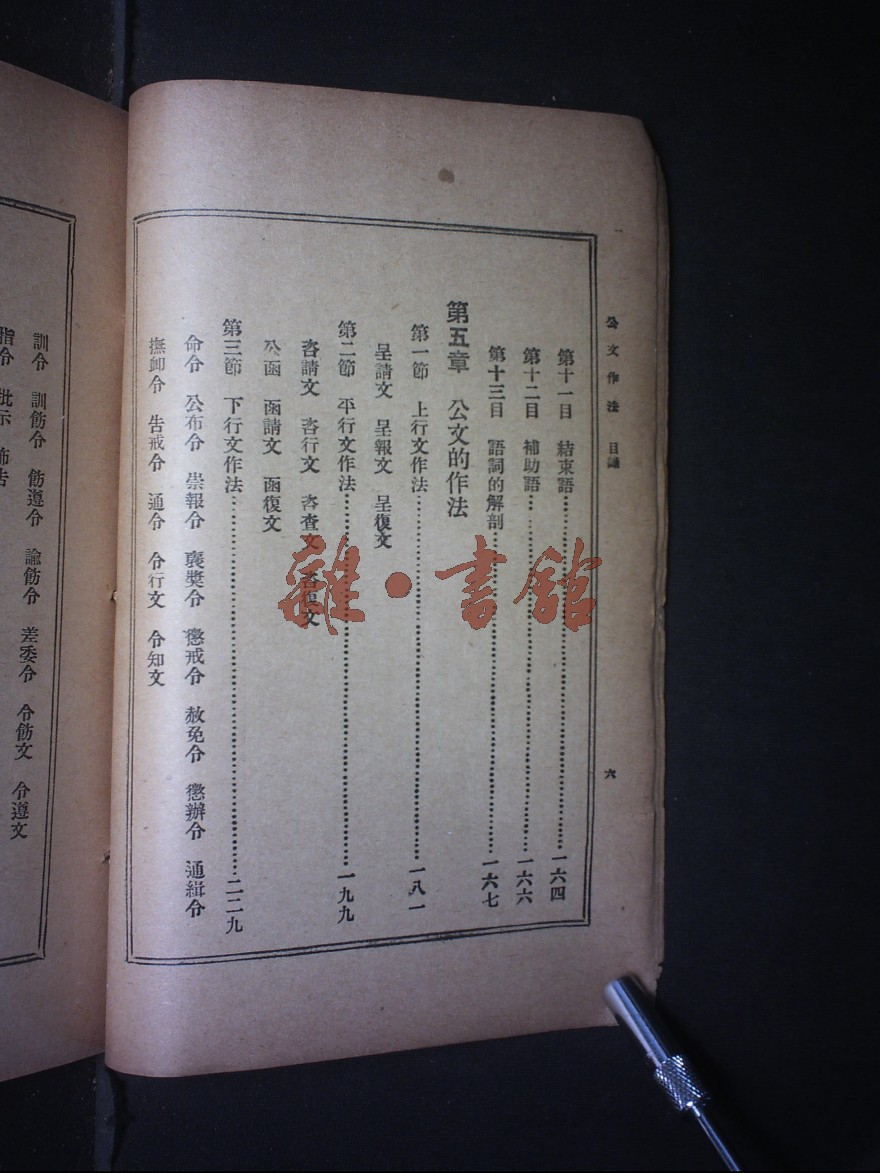 公文作法　目錄
六
第十一目　結束語……一六四
第十二目　補助語……一六六
第十三目　語詞的解剖……一六七
第五章　公文的作法
第一節　上行文作法……一八一
呈請文　呈報文　呈復文
第二節　平行文作法……一九九
咨請文　咨行文　咨查文　咨復文
公函　函請文　函復文
第三節　下行文作法……二二九
命令　公布令　崇報令　褒獎令　懲戒令　赦免令　懲辦令　通緝令
撫卹令　告戒令　通令　令行文　令知文
訓令　訓飭令　飭遵令　諭飭令　差委令　令飭文　令遵文
指令　批示　佈告
雜·書館